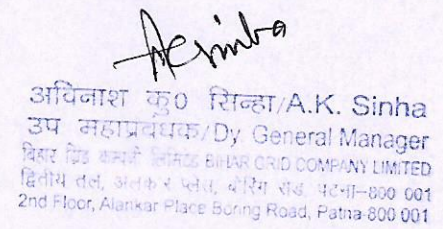 AKSinha
अविनाश कु० सिन्हा/A.K. Sinha
उप महाप्रबंधक/Dy. General Manager
बिहार ग्रिड कम्पनी लिमिटेड BIHAR GRID COMPANY LIMITED
द्वितीय तल, अलंकार प्लेस, बोरिंग रोड, पटना-800 001
2nd Floor, Alankar Place Boring Road, Patna-800 001